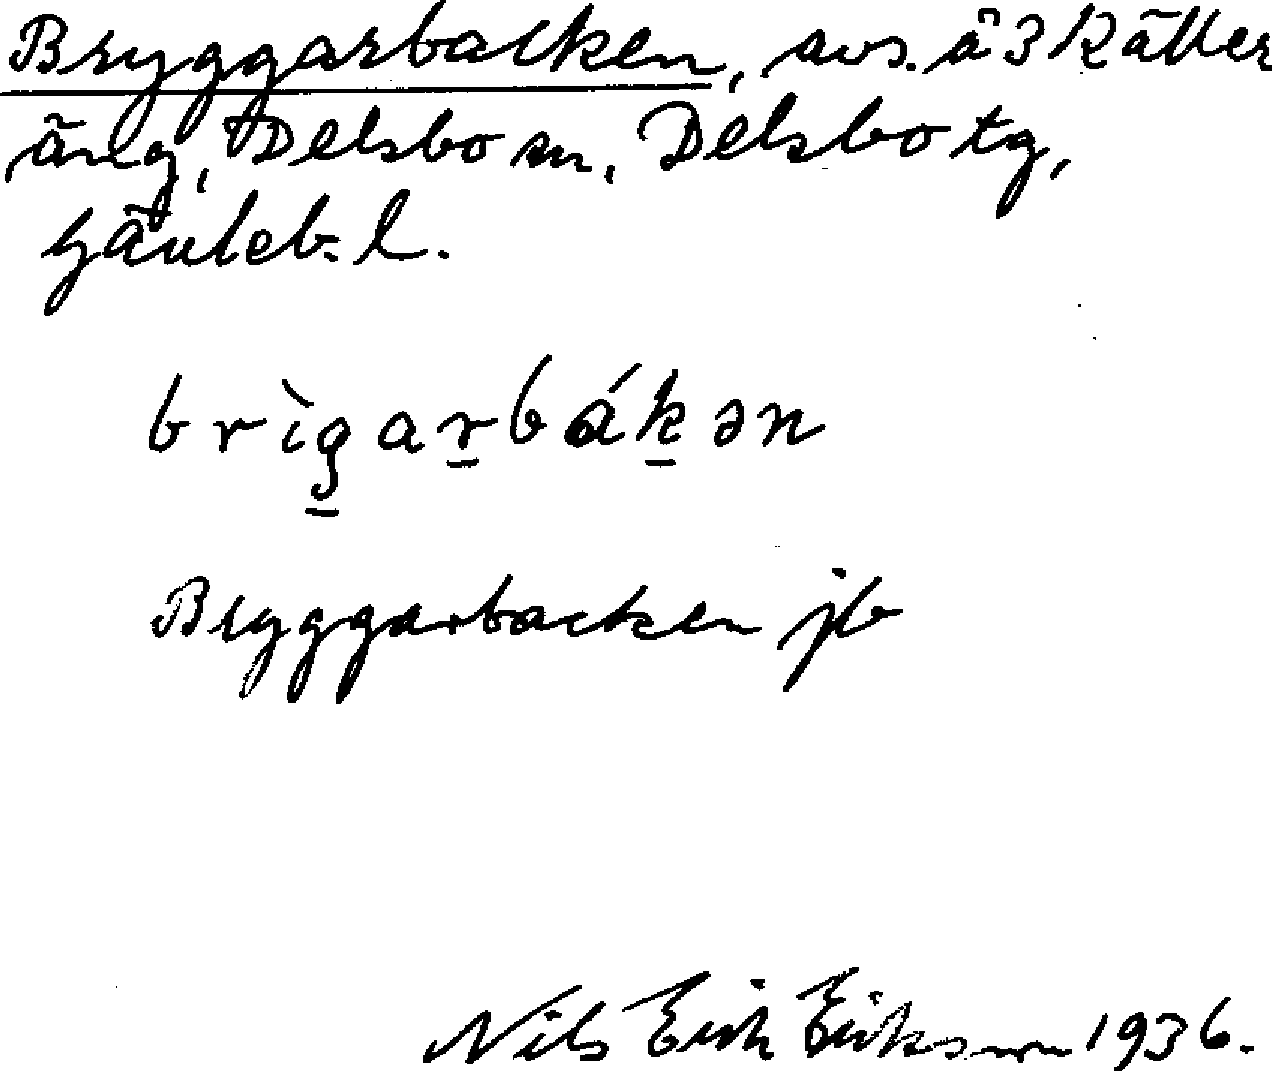 Bryggarbacken, avs. å 3 Kätter
äng, Delsbo sn, Delsbo tg,
Gävleb. l.
brìg̱aṟbáḵən
Bryggarbacken jb
Nils Erik Eriksson 1936.